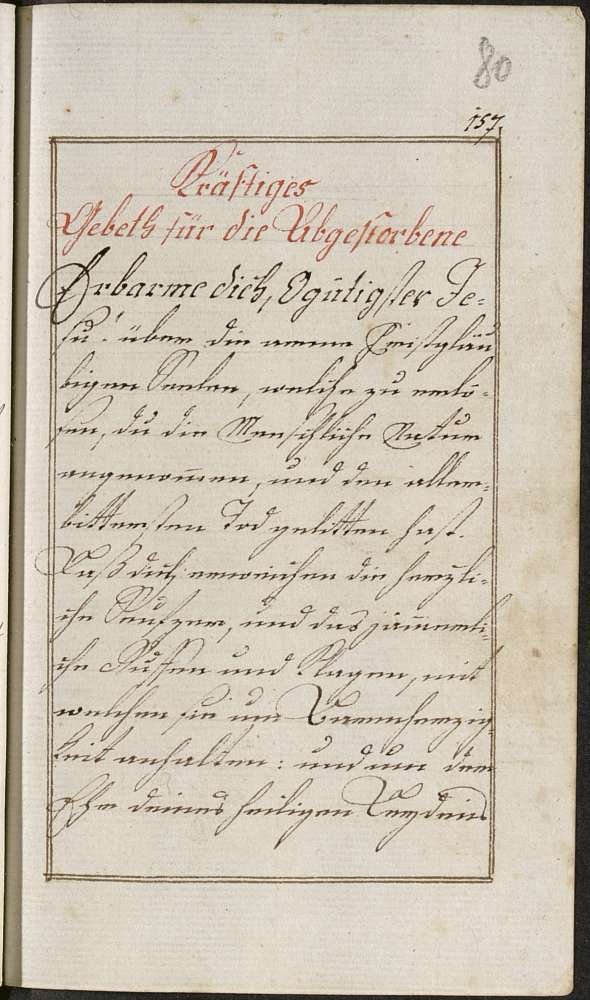 80
157.
Kräftiges
Gebeth für die Abgestorbene
Erbarme dich, O gütigster Je-
su! über die arme Christgläu
bigen Seelen, welche zu erlö-
sen, du die Menschliche Natur
angenom̄en, und den aller-
bittersten Tod gelitten hast.
Laß dich erweichen die herzli-
che Seufzer, und das jam̄erli-
che Ruffen und Klagen, mit
welchen sie um Barmherzig
keit anhalten: und um der
Ehr deines heiligen Leydens